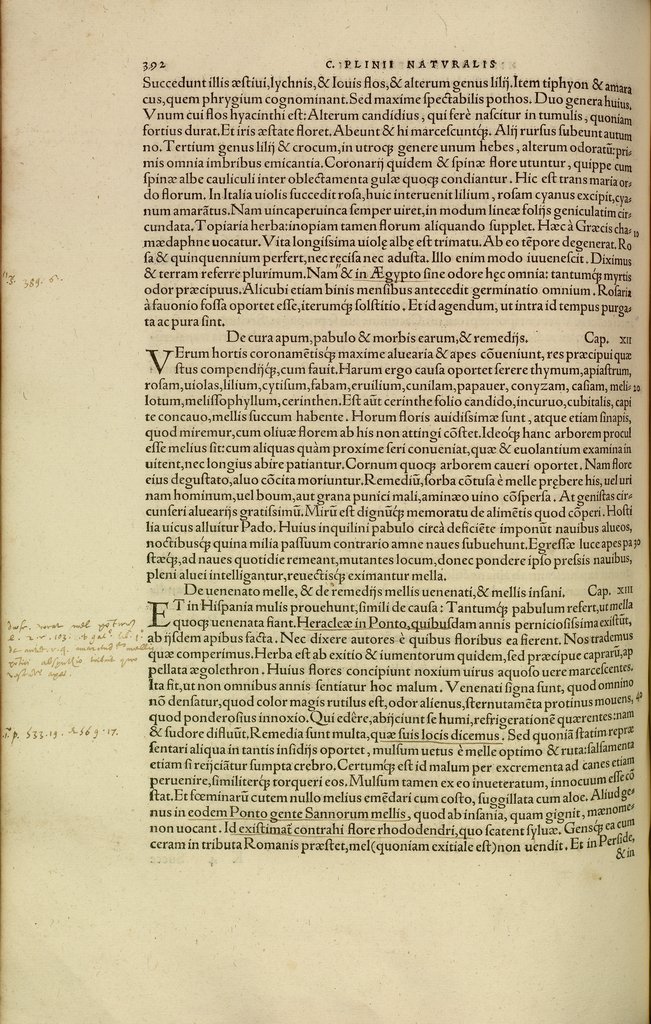 392 C. PLINII NATVRALIS
Succedunt illis æſtiui,lychnis,& Iouis flos,& alterum genus lilij.Item tiphyon & amara
cus,quem phrygium cognominant.Sed maxime ſpectabilis pothos. Duo genera huius.
Vnum cui flos hyacinthi eſt:Alterum candidius,qui ferè naſcitur in tumulis,quoniam
fortius durat.Et iris æſtate floret.Abeunt & hi marceſcuntq́;. Alij rurſus ſubeunt autum
no.Tertium genus lilij & crocum,in utroq; genere unum hebes,alterum odoratũ:pri-
mis omnia imbribus emicantia.Coronarij quidem & ſpinæ flore utuntur, quippe cum
ſpinæ albe cauliculi inter oblectamenta gulæ quoq; condiantur. Hic eſt trans maria or-
do florum. In Italia uiolis ſuccedit roſa,huic interuenit lilium, roſam cyanus excipit,cya-
num amarãtus.Nam uincaperuinca ſemper uiret,in modum lineæ folijs geniculatim cir-
cundata.Topiaria herba:inopiam tamen florum aliquando ſupplet. Hæc à Græcis cha- 10
mædaphne uocatur.Vita longiſſima uiolę albę eſt trimatu. Ab eo tẽpore degenerat.Ro
ſa & quinquennium perfert,nec reciſa nec aduſta. Illo enim modo iuueneſcit. Diximus
& terram referre plurimum.Nam & in Ægypto ſine odore hęc omnia: tantumq́; myrtis
odor præcipuus.Alicubi etiam binis menſibus antecedit germinatio omnium. Roſaria
à fauonio foſſa oportet eſſe,iterumq́; ſolſtitio. Et id agendum, ut intra id tempus purga-
ta ac pura ſint.
De cura apum,pabulo & morbis earum,& remedijs. Cap. XII
VErum hortis coronamẽtisq́; maxime aluearia & apes cõueniunt, res præcipui quæ
ſtus compendijq́;,cum fauit.Harum ergo cauſa oportet ſerere thymum,apiaſtrum,
roſam,uiolas,lilium,cytiſum,fabam,eruilium,cunilam,papauer, conyzam, caſiam, meli- 20
lotum,meliſſophyllum,cerinthen.Eſt aũt cerinthe folio candido,incuruo,cubitalis, capi
te concauo,mellis ſuccum habente. Horum floris auidiſſimæ ſunt, atque etiam ſinapis,
quod miremur,cum oliuæ florem ab his non attingi cõſtet.Ideoq́; hanc arborem procul
eſſe melius ſit:cum aliquas quàm proxime ſeri conueniat,quæ & euolantium examina in
uitent,nec longius abire patiantur.Cornum quoq; arborem caueri oportet. Nam flore
eius deguſtato,aluo cõcita moriuntur.Remediũ,ſorba cõtuſa è melle prębere his,uel uri
nam hominum,uel boum,aut grana punici mali,aminæo uino cõſperſa. At geniſtas cir-
cunſeri aluearijs gratiſſimũ.Mirũ eſt dignũq́; memoratu de alimẽtis quod cõperi. Hoſti
lia uicus alluitur Pado. Huius inquilini pabulo circà deficiẽte imponũt nauibus alueos,
noctibusq́; quina milia paſſuum contrario amne naues ſubuehunt.Egreſſæ luce apes pa 30
ſtæq́;,ad naues quotidie remeant,mutantes locum,donec pondere ipſo preſsis nauibus,
pleni aluei intelligantur,reuectisq́; eximantur mella.
De uenenato melle, & de remedijs mellis uenenati,& mellis inſani. Cap. XIII
ET in Hiſpania mulis prouehunt,ſimili de cauſa : Tantumq́; pabulum refert,ut mella
quoq; uenenata fiant.Heracleæ in Ponto,quibuſdam annis pernicioſiſſima exiſtũt,
ab ijſdem apibus facta. Nec dixere autores è quibus floribus ea fierent. Nos trademus
quæ comperimus.Herba eſt ab exitio & iumentorum quidem,ſed præcipue caprarũ,ap
pellata ægolethron. Huius flores concipiunt noxium uirus aquoſo uere marceſcentes.
Ita fit,ut non omnibus annis ſentiatur hoc malum. Venenati ſigna ſunt, quod omnino
nõ denſatur,quod color magis rutilus eſt,odor alienus,ſternutamẽta protinus mouens, 40
quod ponderoſius innoxio.Qui edêre,abijciunt ſe humi,refrigerationẽ quærentes:nam
& ſudore diffluũt.Remedia ſunt multa,quæ ſuis locis dicemus. Sed quoniã ſtatim repræ
ſentari aliqua in tantis inſidijs oportet, mulſum uetus è melle optimo & ruta:ſalſamenta
etiam ſi reijciãtur ſumpta crebro. Certumq́; eſt id malum per excrementa ad canes etiam
peruenire,ſimiliterq́; torqueri eos. Mulſum tamen ex eo inueteratum, innocuum eſſe cõ
ſtat.Et fœminarũ cutem nullo melius emẽdari cum coſto, ſuggillata cum aloe. Aliud ge-
nus in eodem Ponto gente Sannorum mellis, quod ab inſania, quam gignit, mænome-
non uocant. Id exiſtimãt contrahi flore rhododendri,quo ſcatent ſyluæ. Gensq́; ea cum
ceram in tributa Romanis præſtet,mel(quoniam exitiale eſt)non uendit. Et in Perſide,
& in